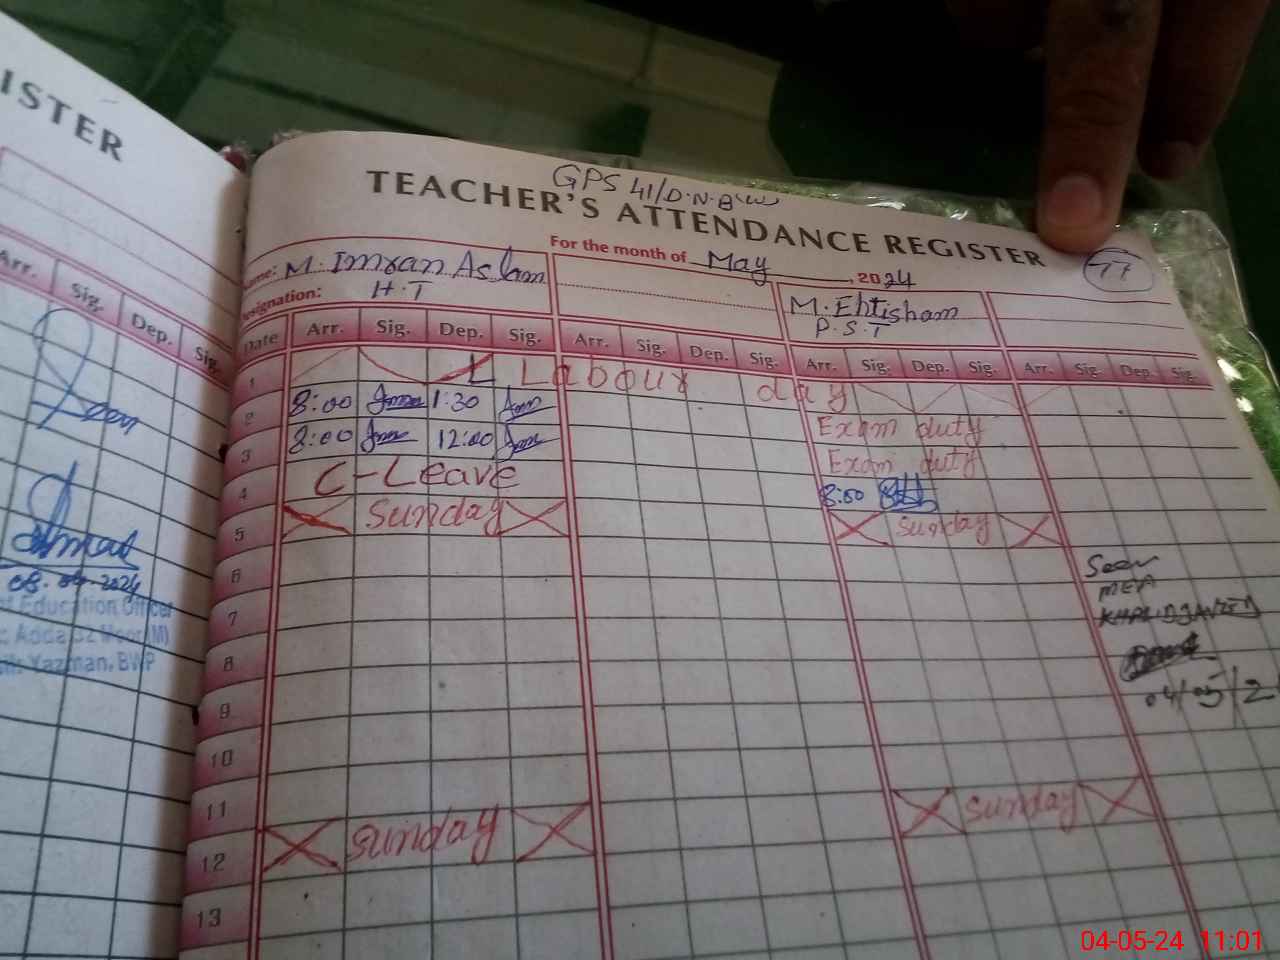 ISTER
Arr. Sig. Dep. Sig.
08.04.2024
Education Officer
Yazman, BWP
GPS 41/D.N.B
TEACHER'S ATTENDANCE REGISTER
For the month of May, 2024
Name: M. Imran Aslam
Designation: H.T
M. Ehtisham
P.S.T
Date Arr. Sig. Dep. Sig. Arr. Sig. Dep. Sig. Arr. Sig. Dep. Sig. Arr. Sig. Dep. Sig.
1 L Labour day
2 8:00 1:30 Exam duty
3 8:00 12:00 Exam duty
4 C-Leave 8:00
5 Sunday Sunday
6
7
8
9
10
11
12 Sunday Sunday
13
Seen
MEA
KHALID JAVED
04/05/2
04-05-24 11:01